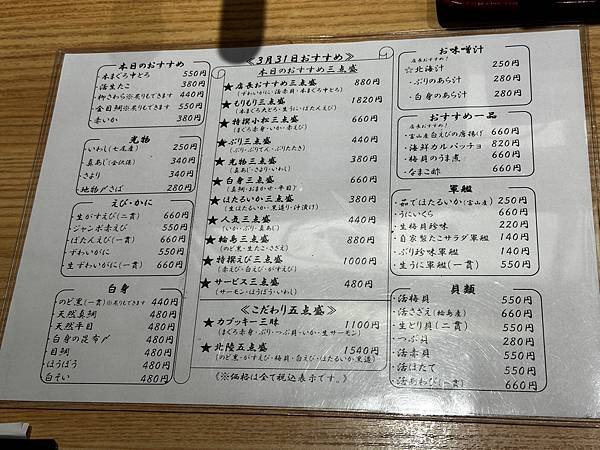 本日のおすすめ
・本まぐろ中とろ 550円
・活生たこ 380円
・柳さわら※炙りもできます 440円
・金目鯛※炙りもできます 550円
・赤いか 380円
光物
・いわし(七尾産) 240円
・真あじ(金沢港) 340円
・さより 340円
・地物〆さば 280円
えび・かに
・生がすえび(二貫) 660円
・ジャンボ赤えび 550円
・ぼたんえび(一貫) 660円
・ずわいがに 550円
・生ずわいがに(一貫) 660円
白身
・のど黒(一貫)※炙りもできます 440円
・天然真鯛 480円
・天然平目 480円
・白身の昆布〆 480円
・目鯛 480円
・ほうぼう 480円
・白そい 480円
≪3月31日おすすめ≫
本日のおすすめ三点盛
★店長おすすめ三点盛 880円
(ずわいがに・活赤貝・本まぐろ中とろ)
★もりもり三点盛 1820円
(本まぐろ大とろ・生うに・ぼたんえび)
★特撰小松三点盛 660円
(まぐろ赤身・いか・赤えび)
★ぶり三点盛 440円
(ぶり・ぶりてん・ぶりたたき)
★光物三点盛 380円
(真あじ・さより・いわし)
★白身三点盛 660円
(真鯛・おまかせ・平目)
★ほたるいか三点盛 380円
(生ほたるいか・黒造り・汁漬け)
★人気三点盛 440円
(いか・ぶり・真あじ)
★輪島三点盛 880円
(のど黒・生たこ・さざえ)
★特撰えび三点盛 1000円
(赤えび・白えび・がすえび)
★サービス三点盛 480円
(サーモン・ほうぼう・いわし)
≪こだわり五点盛≫
★カブッキー三昧 1100円
(まぐろ赤身・ぶり・つぶ貝・いか・生サーモン)
★北陸五点盛 1540円
(のど黒・がすえび・梅貝・白えび・ほたるいか黒造)
≪※価格は全て税込表示です。≫
お味噌汁
店長おすすめ！
☆北海汁 250円
・ぶりのあら汁 280円
・白身のあら汁 280円
おすすめ一品
店長おすすめ！
・富山産白えびの唐揚げ 660円
・海鮮カルパッチョ 820円
・梅貝のうま煮 660円
・なまこ酢 660円
軍艦
・茹でほたるいか(富山産) 250円
・うにいくら 660円
・生梅貝珍味 220円
・自家製たこサラダ軍艦 140円
・ぶり珍味軍艦 140円
・生うに軍艦(一貫) 550円
貝類
・活梅貝 550円
・活さざえ(輪島産) 660円
・生とり貝(二貫) 550円
・つぶ貝 280円
・活赤貝 550円
・活ほたて 550円
・活あわび(一貫) 660円